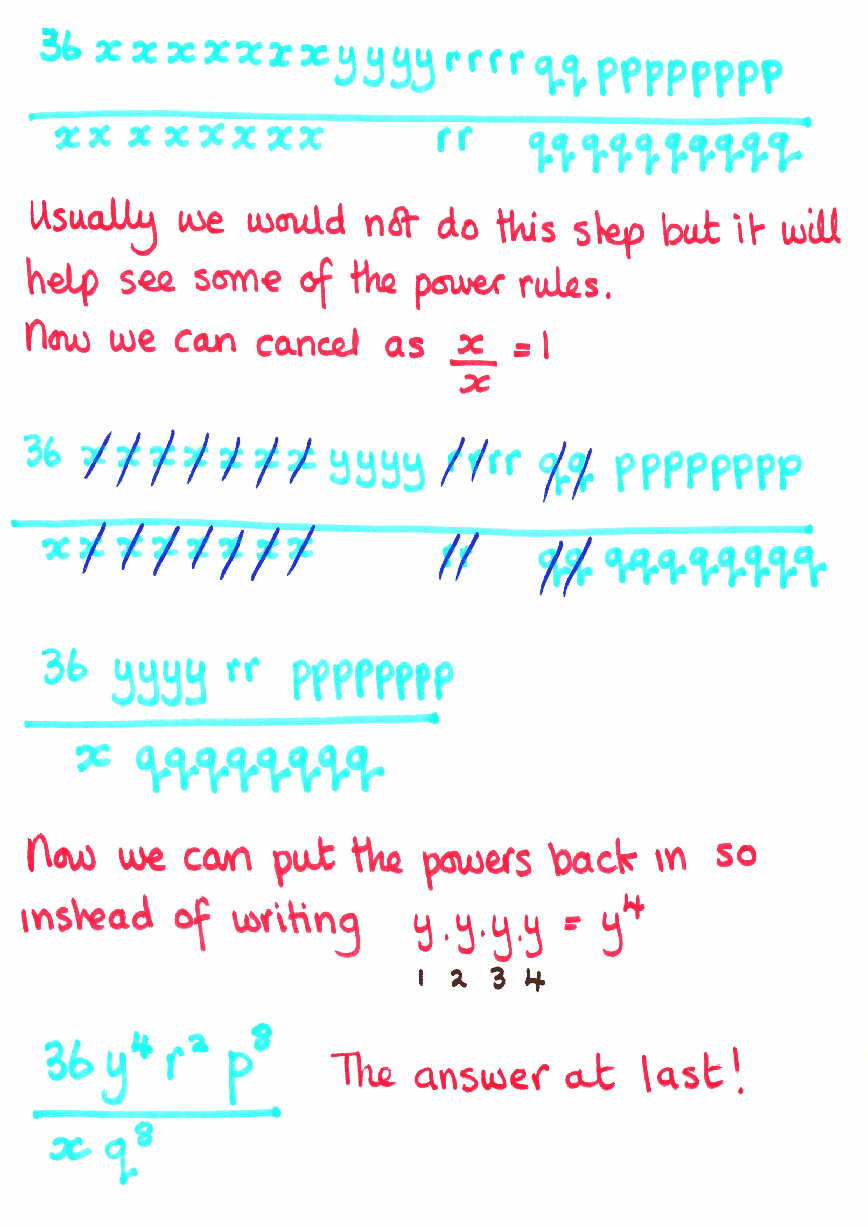 36 x x x x x x x y y y y r r r r q q p p p p p p p p
x x x x x x x x r r q q q q q q q q q q
Usually we would not do this step but it will
help see some of the power rules.
Now we can cancel as x/x = 1
36 x x x x x x x y y y y r r r r q q p p p p p p p p
x x x x x x x x r r q q q q q q q q q q
36 y y y y r r p p p p p p p p
x q q q q q q q q
Now we can put the powers back in so
instead of writing y.y.y.y = y⁴
1 2 3 4
36y⁴ r² p⁸ The answer at last!
x q⁸